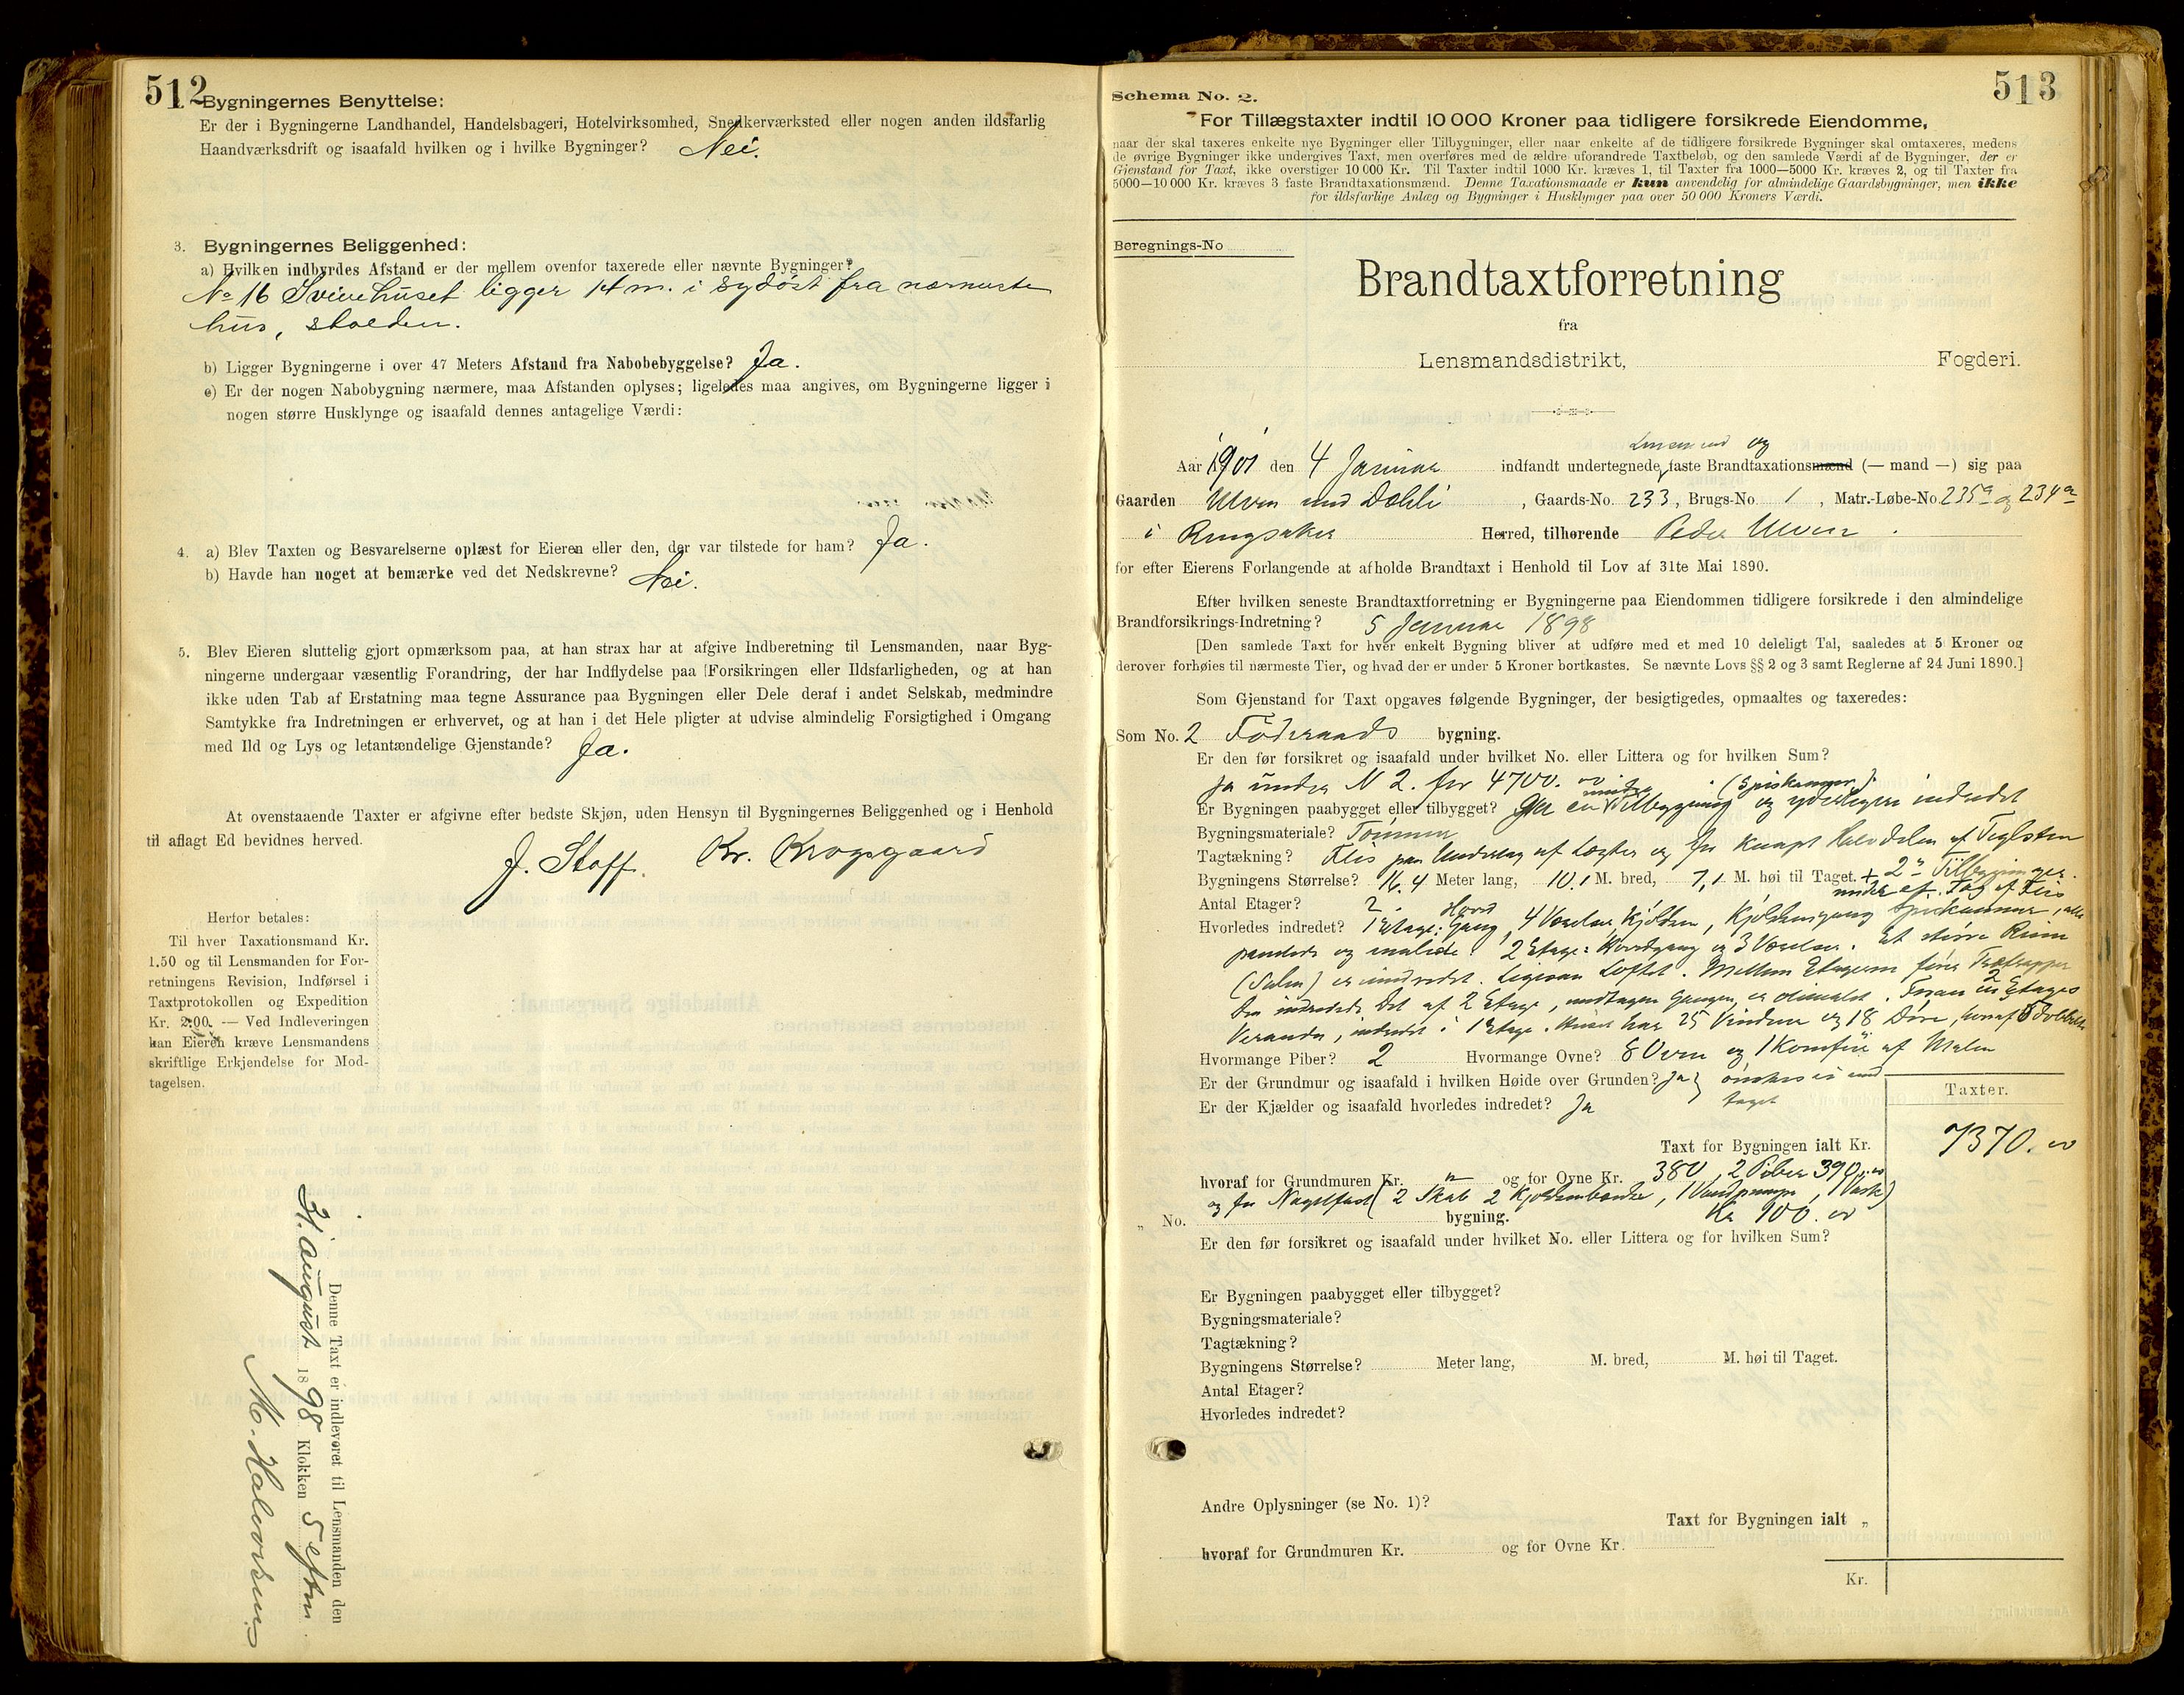 512
Bygningernes Benyttelse:
Er der i Bygningerne Landhandel, Handelsbageri, Hotelvirksomhed, Snedkerværksted eller nogen anden ildsfarlig
Haandværksdrift og isaafald hvilken og i hvilke Bygninger? Nei.
3. Bygningernes Beliggenhed:
a) Hvilken indbyrdes Afstand er der mellem ovenfor taxerede eller nævnte Bygninger?
No 16 Svinehuset ligger 14 m. i sydöst fra nærmeste
hus, stalden.
b) Ligger Bygningerne i over 47 Meters Afstand fra Nabobebyggelse? Ja.
c) Er der nogen Nabobygning nærmere, maa Afstanden oplyses; ligeledes maa angives, om Bygningerne ligger i
nogen større Husklynge og isaafald dennes antagelige Værdi:
4. a) Blev Taxten og Besvarelserne oplæst for Eieren eller den, der var tilstede for ham? Ja.
b) Havde han noget at bemærke ved det Nedskrevne? Nei.
5. Blev Eieren sluttelig gjort opmærksom paa, at han strax har at afgive Indberetning til Lensmanden, naar Byg-
ningerne undergaar væsentlig Forandring, der har Indflydelse paa Forsikringen eller Ildsfarligheden, og at han
ikke uden Tab af Erstatning maa tegne Assurance paa Bygningen eller Dele deraf i andet Selskab, medmindre
Samtykke fra Indretningen er erhvervet, og at han i det Hele pligter at udvise almindelig Forsigtighed i Omgang
med Ild og Lys og letantændelige Gjenstande? Ja.
At ovenstaaende Taxter er afgivne efter bedste Skjøn, uden Hensyn til Bygningernes Beliggenhed og i Henhold
til aflagt Ed bevidnes herved.
J. Staff. Kr. Krogsgaard
Herfor betales:
Til hver Taxationsmand Kr.
1.50 og til Lensmanden for For-
retningens Revision, Indførsel i
Taxtprotokollen og Expedition
Kr. 2.00. — Ved Indleveringen
kan Eieren kræve Lensmandens
skriftlige Erkjendelse for Mod-
tagelsen.
Denne Taxt er indleveret til Lensmanden den
31. august 1898 Klokken 5 eftm.
M. Halvorsen
513
Schema No. 2.
For Tillægstaxter indtil 10 000 Kroner paa tidligere forsikrede Eiendomme,
naar der skal taxeres enkelte nye Bygninger eller Tilbygninger, eller naar enkelte af de tidligere forsikrede Bygninger skal omtaxeres, medens
de øvrige Bygninger ikke undergives Taxt, men overføres med de ældre uforandrede Taxtbeløb, og den samlede Værdi af de Bygninger, der er
Gjenstand for Taxt, ikke overstiger 10 000 Kr. Til Taxter indtil 1000 Kr. kræves 1, til Taxter fra 1000—5000 Kr. kræves 2, og til Taxter fra
5000—10 000 Kr. kræves 3 faste Brandtaxationsmænd. Denne Taxationsmaade er kun anvendelig for almindelige Gaardsbygninger, men ikke
for ildsfarlige Anlæg og Bygninger i Husklynger paa over 50 000 Kroners Værdi.
Beregnings-No
Brandtaxtforretning
fra
Lensmandsdistrikt, Fogderi.
Lensmand og
Aar 1901 den 4 Januar indfandt undertegnede faste Brandtaxationsmænd (— mand —) sig paa
Gaarden Ulven med Dæhli, Gaards-No. 233, Brugs-No. 1, Matr.-Løbe-No. 235a og 234a
i Ringsaker Herred, tilhørende Peder Ulven.
for efter Eierens Forlangende at afholde Brandtaxt i Henhold til Lov af 31te Mai 1890.
Efter hvilken seneste Brandtaxtforretning er Bygningerne paa Eiendommen tidligere forsikrede i den almindelige
Brandforsikrings-Indretning? 5 Januar 1898
[Den samlede Taxt for hver enkelt Bygning bliver at udføre med et med 10 deleligt Tal, saaledes at 5 Kroner og
derover forhøies til nærmeste Tier, og hvad der er under 5 Kroner bortkastes. Se nævnte Lovs §§ 2 og 3 samt Reglerne af 24 Juni 1890.]
Som Gjenstand for Taxt opgaves følgende Bygninger, der besigtigedes, opmaaltes og taxeredes:
Som No. 2 Föderaads bygning.
Er den før forsikret og isaafald under hvilket No. eller Littera og for hvilken Sum?
Ja under N 2. for 4700.
mindre (Spiskammer).
Er Bygningen paabygget eller tilbygget? en Tilbygning og yderligere indredet
Bygningsmateriale? Tömmer
Tagtækning? Flis paa Underlag af Lægter og for knapt Halvdelen af Teglsten
Bygningens Størrelse? 16.4 Meter lang, 10.1 M. bred, 7,1 M. høi til Taget. + 2de Tilbygninger.
Antal Etager? 2. under et. Tag af Flis
Hvorledes indredet? 1 Etage: Gang, 4 Værelser, Kjökken, Kjökkengang Spiskammer, alle
panelede og malede. 2 Etage: Gang og 3 Værelser. Et större Rum
(Salen) er uindredet. Ligesaa Loftet. Mellem Etagerne fører Trætrapper
Den indredede Del af 2 Etage, undtagen Gangen, er oliemalet. Foran en 2 Etages
Veranda, indredet i 1 Etage. Huset har 25 Vinduer og 18 Döre, hvoraf 5 dobbelte
Hvormange Piber? 2 Hvormange Ovne? 8 Ovne og 1 Komfür af Malm
Er der Grundmur og isaafald i hvilken Høide over Grunden? Ja } önskes ei med
Er der Kjælder og isaafald hvorledes indredet? Ja taget
Taxter.
Taxt for Bygningen ialt Kr. 7370.00
hvoraf for Grundmuren Kr. " og for Ovne Kr. 380, 2 Piber 390.00
og for Nagelfast (2 Skab 2 Kjökkenbænke, 1 Vandpumpe, 1 Vask)
Kr 100.00
" No. bygning.
Er den før forsikret og isaafald under hvilket No. eller Littera og for hvilken Sum?
Er Bygningen paabygget eller tilbygget?
Bygningsmateriale?
Tagtækning?
Bygningens Størrelse? Meter lang, M. bred, M. høi til Taget.
Antal Etager?
Hvorledes indredet?
Andre Oplysninger (se No. 1)?
Taxt for Bygningen ialt "
hvoraf for Grundmuren Kr. og for Ovne Kr.
Kr.